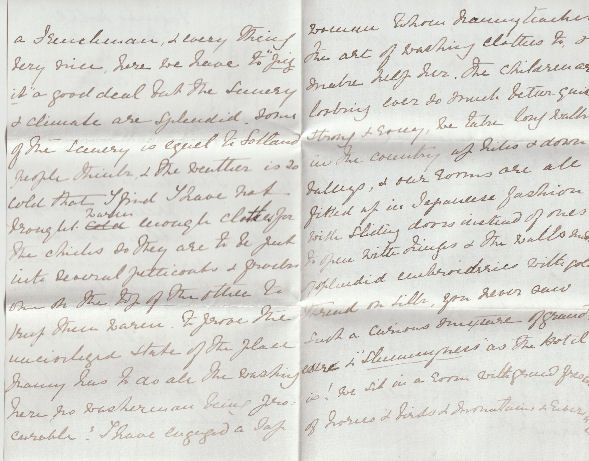 a Frenchman, & every thing
very nice, here we have to "pig
it" a good deal but the scenery
& climate are splendid. Some
of the scenery is equal to Scotland
people think, & the weather is so
cold that I find I have not
brought warm enough clothes for
the chicks so they are to be put
into several petticoats & frocks
one on the top of the other to
keep them warm. To prove the
uncivilized state of the place
nanny has to do all the washing
here no washerman being pro-
curable! I have engaged a Jap
woman whom nanny teaches
the art of washing clothes to, &
make help her. The children are
looking ever so much better quite
strong & rosey, we take long walks
in the country up hills & down
valleys, & our rooms are all
fitted up in Japanese fashion
with sliding doors instead of ones
to open with hinges & the walls are
splendid embroideries with gold
thread on silk, you never saw
such a curious mixture of grand
& "slummingness" as the hotel
is! We sit in a room with grand
of horses & birds & mountains &